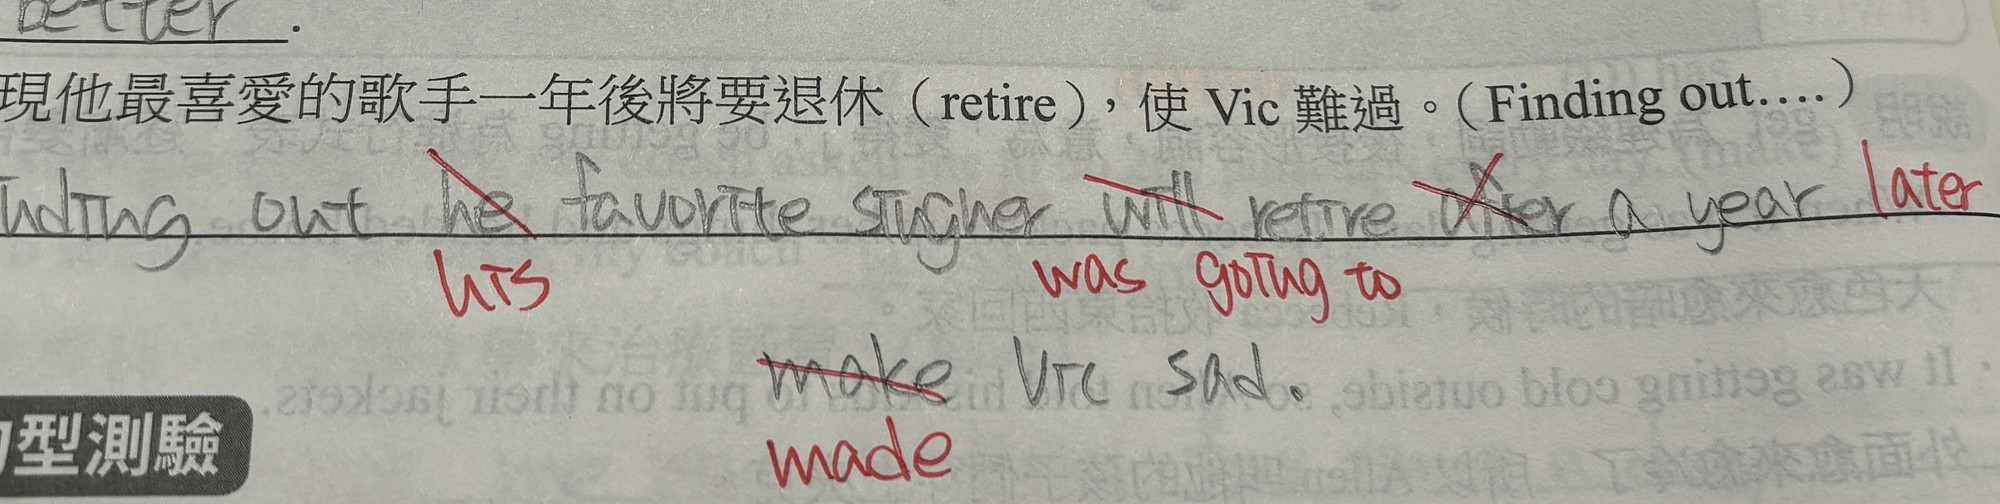 better.
現他最喜愛的歌手一年後將要退休（retire），使 Vic 難過。（Finding out....）
inding out he favorite singher will retire after a year later
his was going to
make Vic sad.
made
型測驗